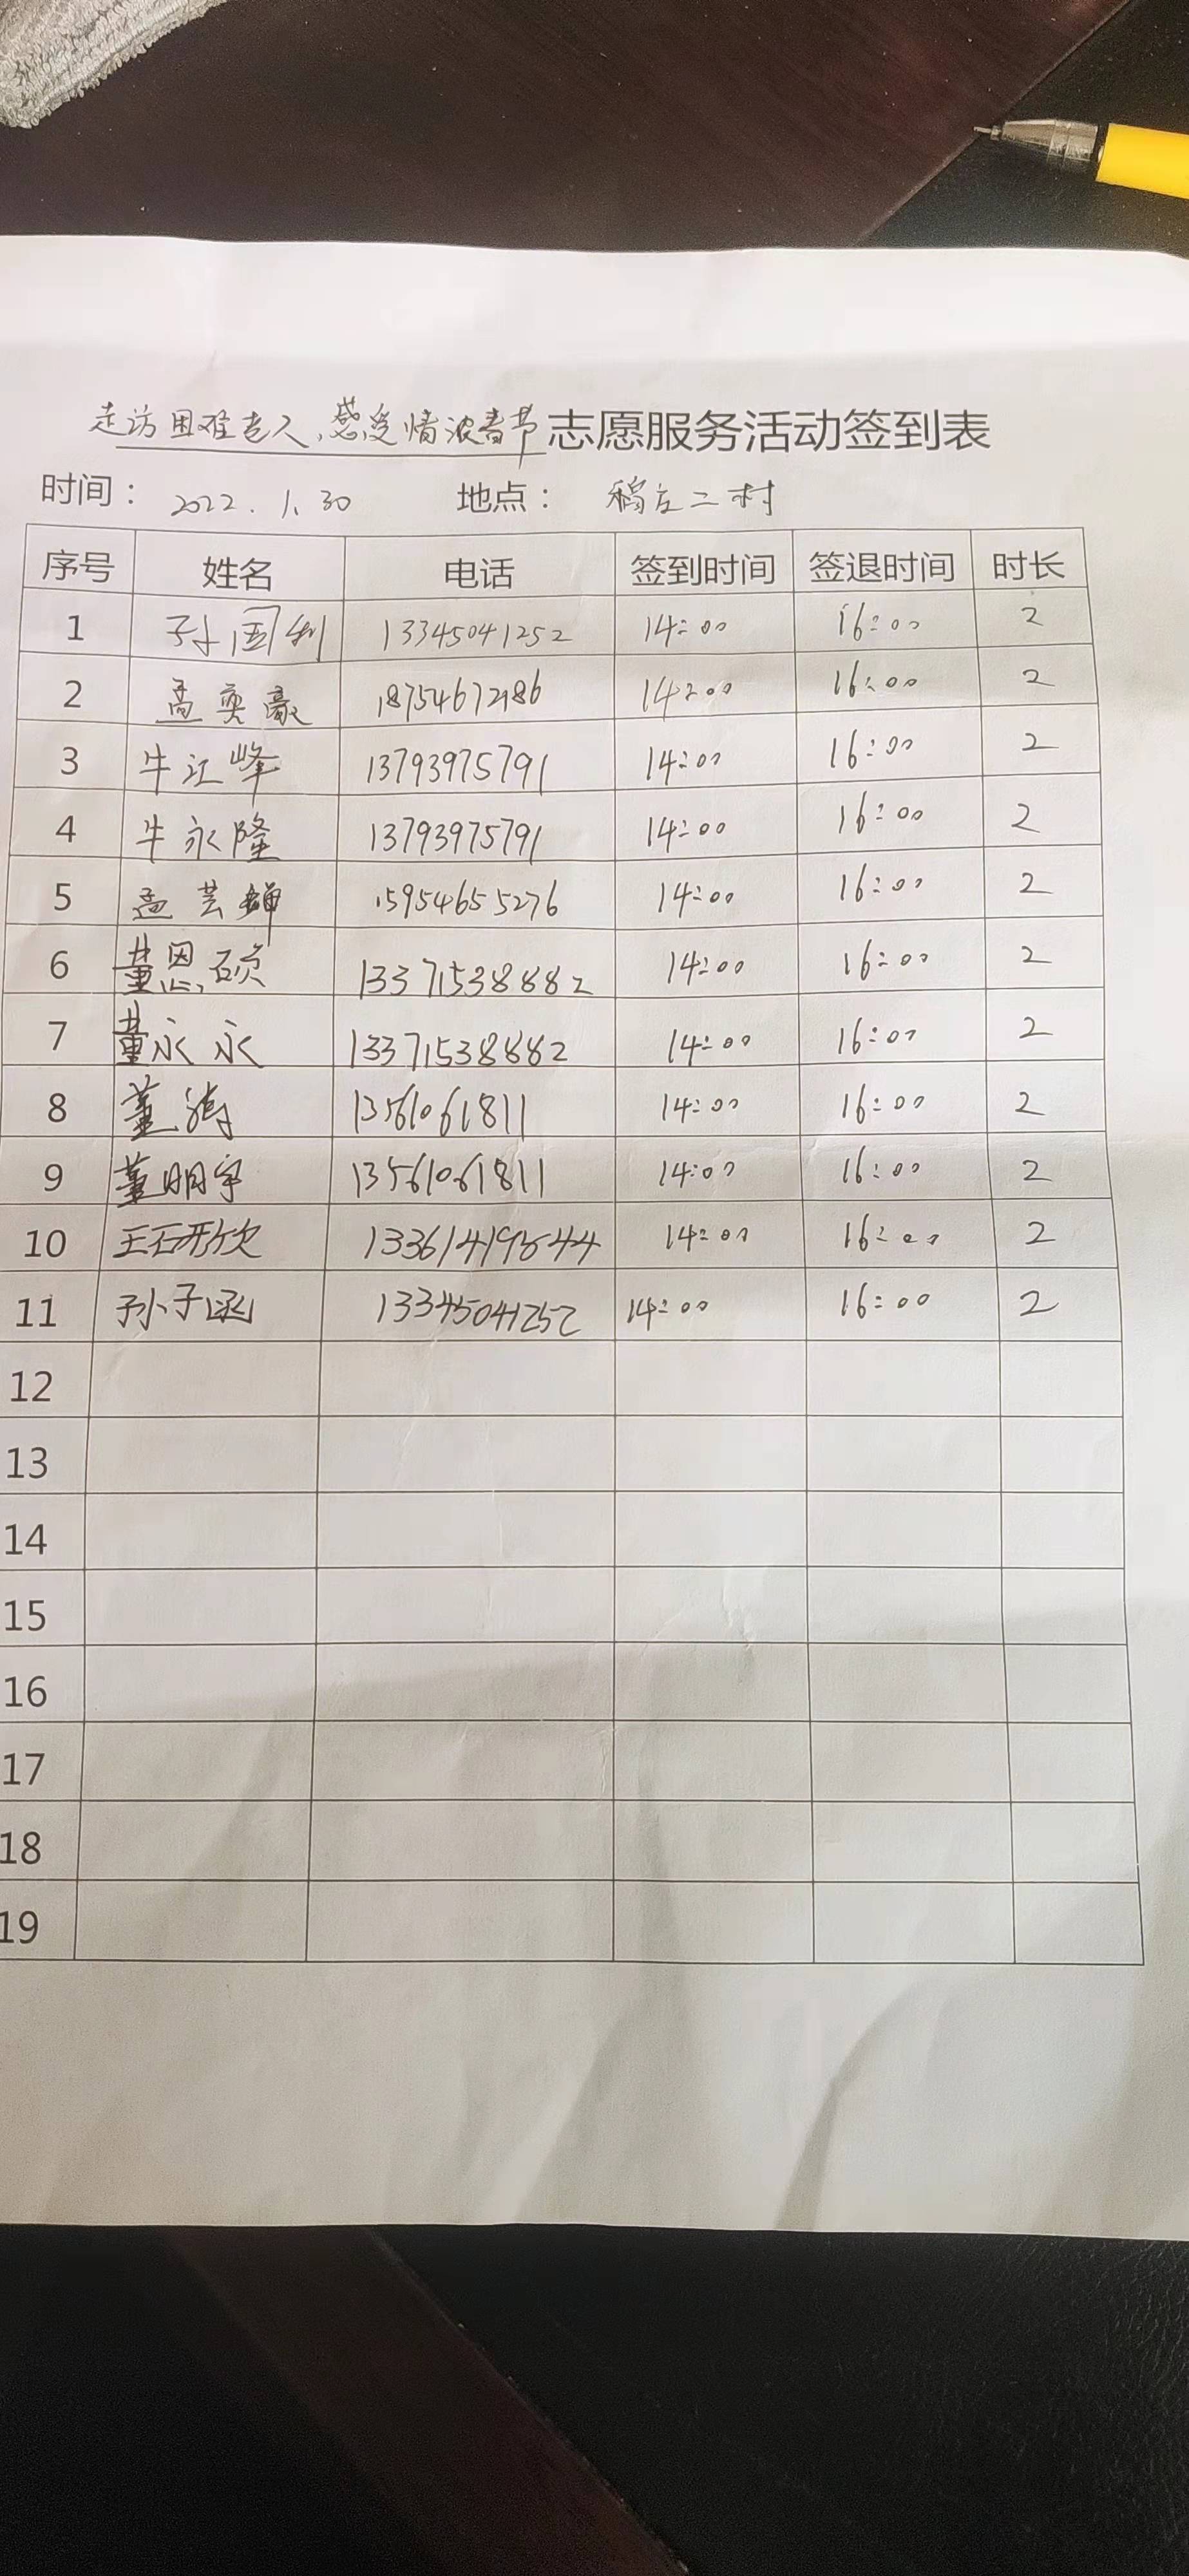 走访困难老人、感受情浓春节志愿服务活动签到表
时间： 2022.1.30 地点： 稍左二村
序号 姓名 电话 签到时间 签退时间 时长
1 孙国利 13345041252 14:00 16:00 2
2 孟奕豪 18754672186 14:00 16:00 2
3 牛江峰 13793975791 14:00 16:00 2
4 牛永隆 13793975791 14:00 16:00 2
5 孟芸婵 15954655276 14:00 16:00 2
6 董恩硕 13371538882 14:00 16:00 2
7 董永永 13371538882 14:00 16:00 2
8 董涛 13561061811 14:00 16:00 2
9 董明宇 13561061811 14:00 16:00 2
10 王妍欣 14:00 16:00 2
11 孙子涵 13345041252 14:00 16:00 2
12
13
14
15
16
17
18
19